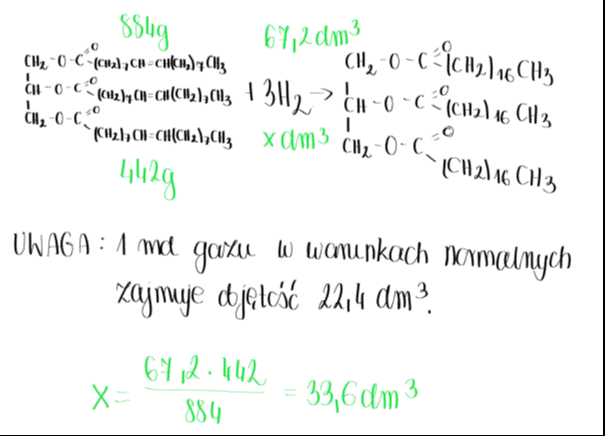 884g 67,2dm³
CH₂-O-C=O (CH₂)₇CH=CH(CH₂)₇CH₃ CH₂-O-C=O (CH₂)₁₆CH₃
CH-O-C=O (CH₂)₇CH=CH(CH₂)₇CH₃ + 3H₂ → CH-O-C=O (CH₂)₁₆CH₃
CH₂-O-C=O (CH₂)₇CH=CH(CH₂)₇CH₃ x dm³ CH₂-O-C=O (CH₂)₁₆CH₃
442g
UWAGA: 1 mol gazu w warunkach normalnych
zajmuje objętość 22,4 dm³.
x = 67,2 · 442 / 884 = 33,6 dm³